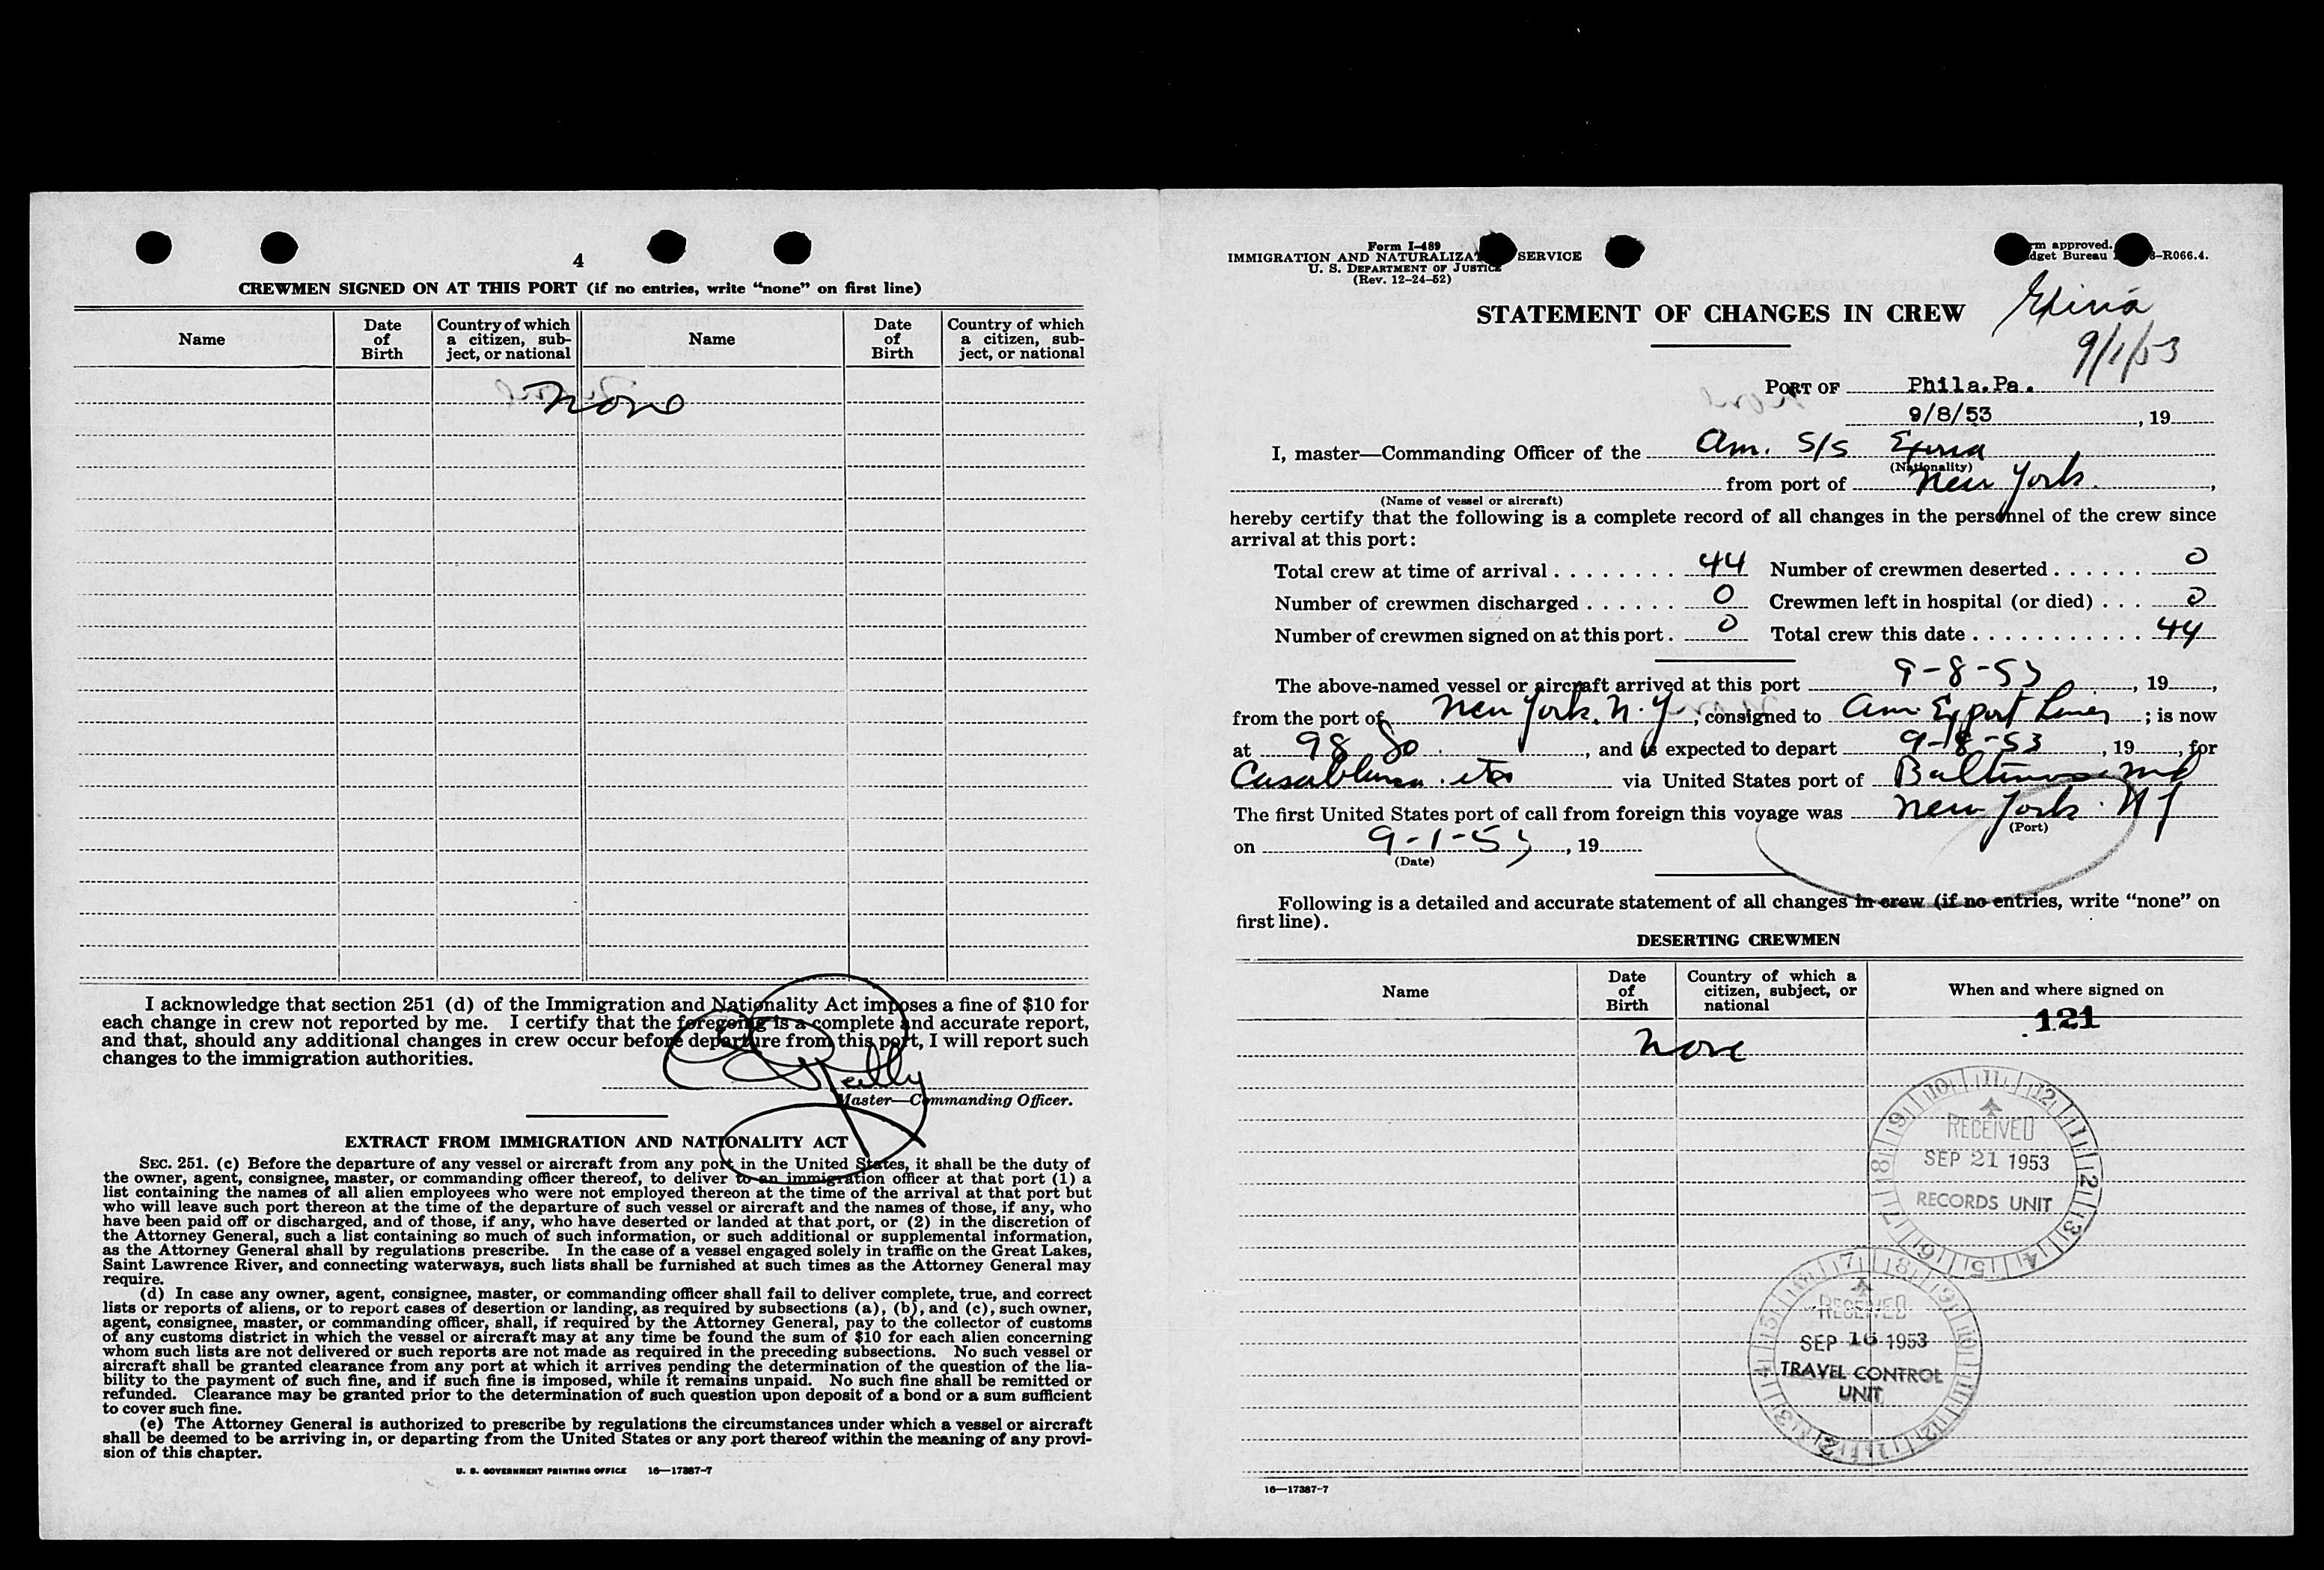 4
CREWMEN SIGNED ON AT THIS PORT (if no entries, write “none” on first line)
Name
Date of Birth
Country of which a citizen, subject, or national
Name
Date of Birth
Country of which a citizen, subject, or national
None
I acknowledge that section 251 (d) of the Immigration and Nationality Act imposes a fine of $10 for
each change in crew not reported by me. I certify that the foregoing is a complete and accurate report,
and that, should any additional changes in crew occur before departure from this port, I will report such
changes to the immigration authorities.
Master—Commanding Officer.
EXTRACT FROM IMMIGRATION AND NATIONALITY ACT
SEC. 251. (c) Before the departure of any vessel or aircraft from any port in the United States, it shall be the duty of
the owner, agent, consignee, master, or commanding officer thereof, to deliver to an immigration officer at that port (1) a
list containing the names of all alien employees who were not employed thereon at the time of the arrival at that port but
who will leave such port thereon at the time of the departure of such vessel or aircraft and the names of those, if any, who
have been paid off or discharged, and of those, if any, who have deserted or landed at that port, or (2) in the discretion of
the Attorney General, such a list containing so much of such information, or such additional or supplemental information,
as the Attorney General shall by regulations prescribe. In the case of a vessel engaged solely in traffic on the Great Lakes,
Saint Lawrence River, and connecting waterways, such lists shall be furnished at such times as the Attorney General may
require.
(d) In case any owner, agent, consignee, master, or commanding officer shall fail to deliver complete, true, and correct
lists or reports of aliens, or to report cases of desertion or landing, as required by subsections (a), (b), and (c), such owner,
agent, consignee, master, or commanding officer, shall, if required by the Attorney General, pay to the collector of customs
of any customs district in which the vessel or aircraft may at any time be found the sum of $10 for each alien concerning
whom such lists are not delivered or such reports are not made as required in the preceding subsections. No such vessel or
aircraft shall be granted clearance from any port at which it arrives pending the determination of the question of the lia-
bility to the payment of such fine, and if such fine is imposed, while it remains unpaid. No such fine shall be remitted or
refunded. Clearance may be granted prior to the determination of such question upon deposit of a bond or a sum sufficient
to cover such fine.
(e) The Attorney General is authorized to prescribe by regulations the circumstances under which a vessel or aircraft
shall be deemed to be arriving in, or departing from the United States or any port thereof within the meaning of any provi-
sion of this chapter.
U. S. GOVERNMENT PRINTING OFFICE 16—17387-7
Form I-489
IMMIGRATION AND NATURALIZAT SERVICE
U. S. DEPARTMENT OF JUSTICE
(Rev. 12-24-52)
rm approved.
dget Bureau -R066.4.
STATEMENT OF CHANGES IN CREW
Exiria
9/1/53
PORT OF Phila.Pa.
9/8/53 , 19
I, master—Commanding Officer of the Am. S/S Exiria
(Nationality)
from port of New York ,
(Name of vessel or aircraft)
hereby certify that the following is a complete record of all changes in the personnel of the crew since
arrival at this port:
Total crew at time of arrival 44 Number of crewmen deserted 0
Number of crewmen discharged 0 Crewmen left in hospital (or died) 0
Number of crewmen signed on at this port 0 Total crew this date 44
The above-named vessel or aircraft arrived at this port 9-8-53 , 19 ,
from the port of New York, N.Y. , consigned to Am Export Lines ; is now
at 98 So , and is expected to depart 9-8-53 , 19 , for
Casablanca etc via United States port of Baltimore Md
The first United States port of call from foreign this voyage was New York N Y
(Port)
on 9-1-53 , 19
(Date)
Following is a detailed and accurate statement of all changes in crew (if no entries, write “none” on
first line).
DESERTING CREWMEN
Name
Date of Birth
Country of which a citizen, subject, or national
When and where signed on
121
None
RECEIVED
SEP 21 1953
RECORDS UNIT
RECEIVED
SEP 16 1953
TRAVEL CONTROL
UNIT
16—17387-7